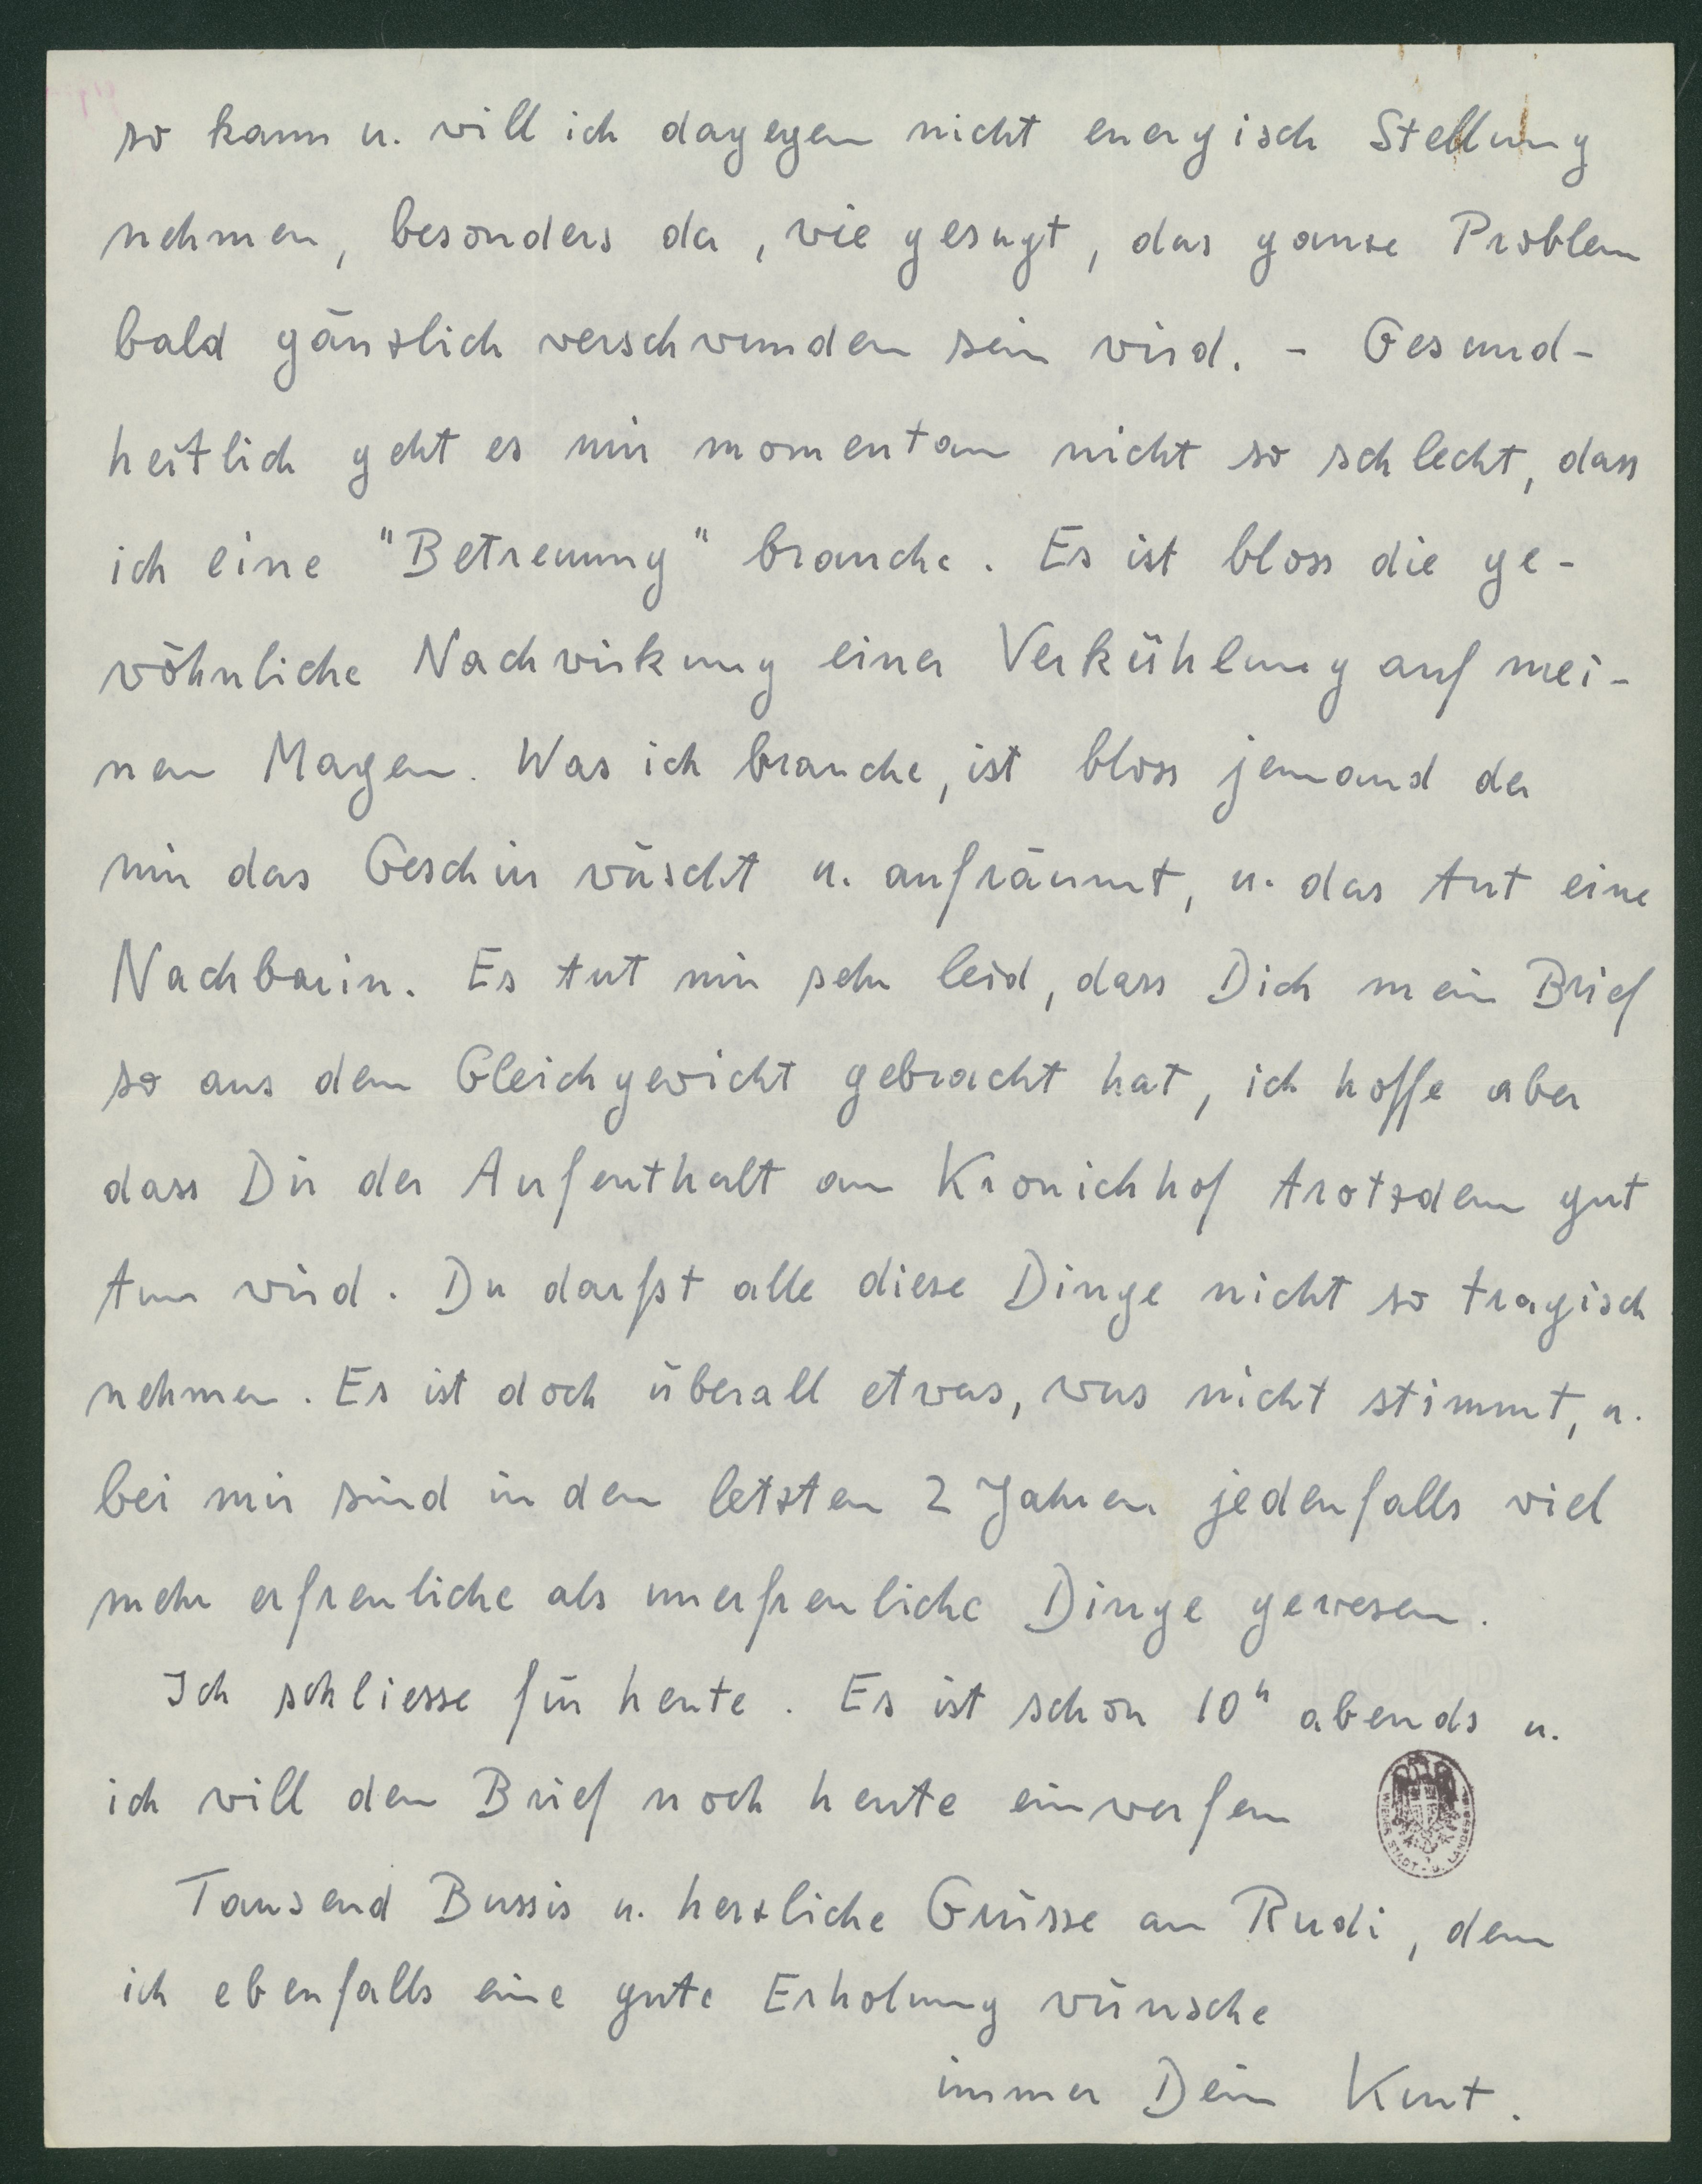 so kann u. will ich dagegen nicht energisch Stellung
nehmen, besonders da, wie gesagt, das ganze Problem
bald gänzlich verschwunden sein wird. - Gesund-
heitlich geht es mir momentan nicht so schlecht, dass
ich eine "Betreuung" brauche. Es ist bloss die ge-
wöhnliche Nachwirkung einer Verkühlung auf mei-
nen Magen. Was ich brauche, ist bloss jemand der
mir das Geschirr wäscht u. aufräumt, u. das tut eine
Nachbarin. Es tut mir sehr leid, dass Dich mein Brief
so aus dem Gleichgewicht gebracht hat, ich hoffe aber
dass Dir der Aufenthalt am Kronichhof trotzdem gut
tun wird. Du darfst alle diese Dinge nicht so tragisch
nehmen. Es ist doch überall etwas, was nicht stimmt, u.
bei mir sind in den letzten 2 Jahren jedenfalls viel
mehr erfreuliche als unerfreuliche Dinge gewesen.
Ich schliesse für heute. Es ist schon 10ʰ abends u.
ich will den Brief noch heute einwerfen
Tausend Bussis u. herzliche Grüsse an Rudi, dem
ich ebenfalls eine gute Erholung wünsche
immer Dein Kurt.